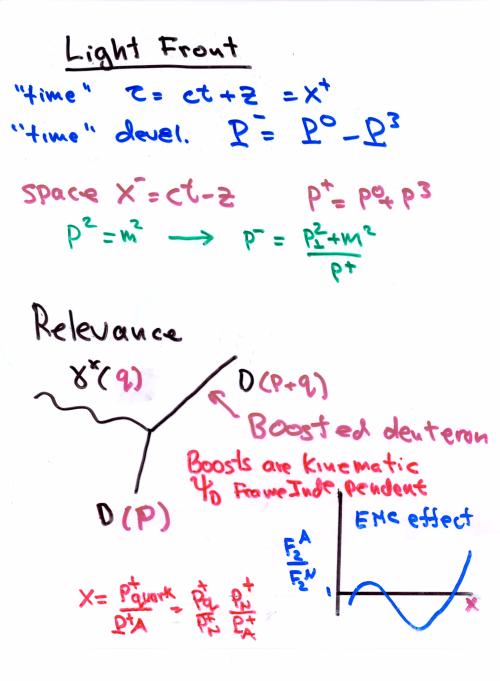 Light Front
"time" τ = ct + z = x⁺
"time" devel. P⁻ = P⁰ − P³
space x⁻ = ct − z p⁺ = p⁰ + p³
p² = m² → p⁻ = p⊥² + m² / p⁺
Relevance
γ*(q)
D(P+q)
Boosted deuteron
Boosts are Kinematic
ψ_D Frame Independent
D(P)
EMC effect
F₂ᴬ / F₂ᴺ
1
x
x = P⁺quark / P⁺A = P⁺q / P⁺N P⁺N / P⁺A